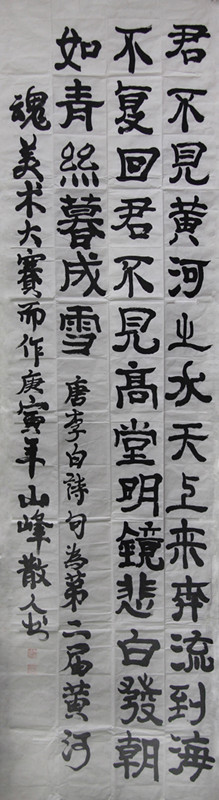 君不見黃河之水天上来奔流到海
不复回君不見高堂明鏡悲白發朝
如青絲暮成雪 唐李白詩句为第二届黄河
魂美术大賽而作庚寅年山峰散人书